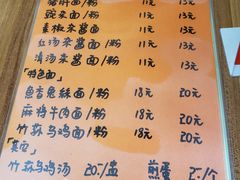 猪肝面/粉 11元 13元
豌杂面/粉 11元 13元
素椒杂酱面/粉 11元 13元
红汤杂酱面/粉 11元 13元
清汤杂酱面/粉 11元 13元
「特色面」
鱼香兔丝面/粉 18元 20元
麻辣牛肉面/粉 18元 20元
竹荪乌鸡面/粉 18元 20元
「其它」
竹荪乌鸡汤 20元/盅 煎蛋 2元/个